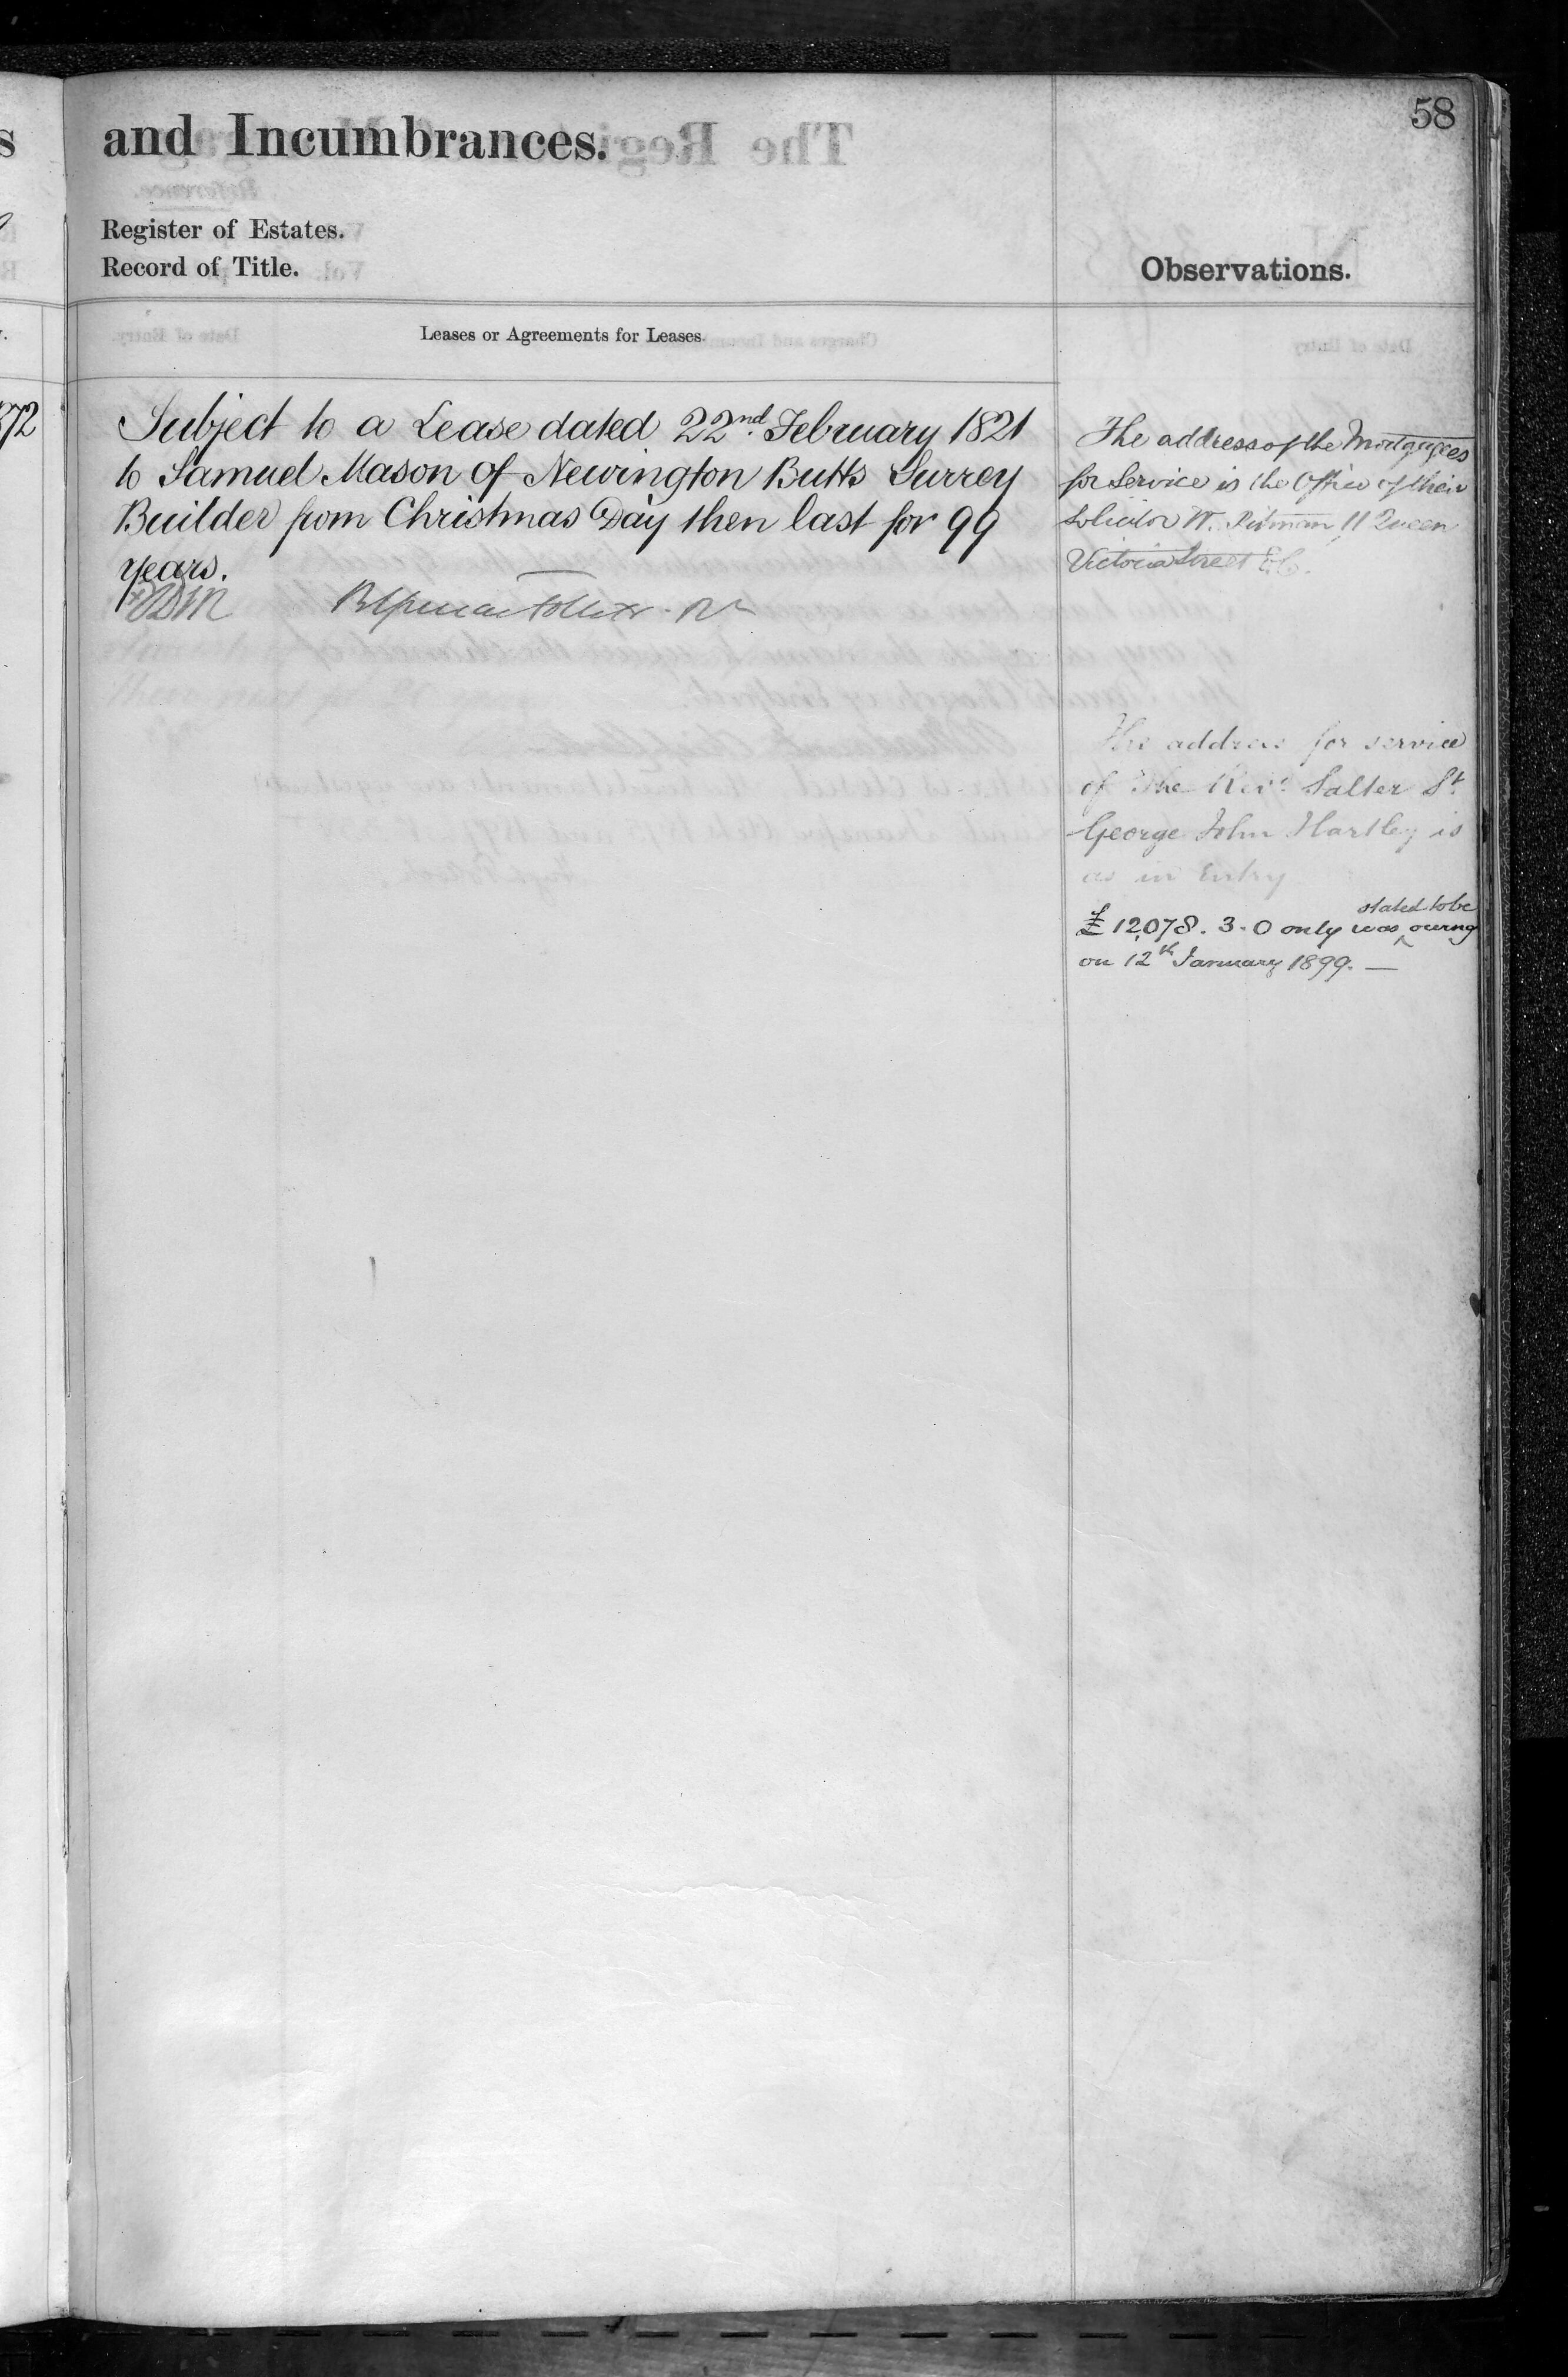 58
and Incumbrances.
Register of Estates.
Record of Title.
Observations.
Leases or Agreements for Leases.
872
Subject to a Lease dated 22nd February 1821
to Samuel Mason of Newington Butts Surrey
Builder from Christmas Day then last for 99
years.
The address of the Mortgagees
for Service is the Office of their
Solicitor W. Pitman 11 Queen
Victoria Street E.C.
The address for service
of The Revd. Salter St.
George John Hartley is
as in Entry
£12,078. 3. 0 only was stated to be owing
on 12th January 1899. —